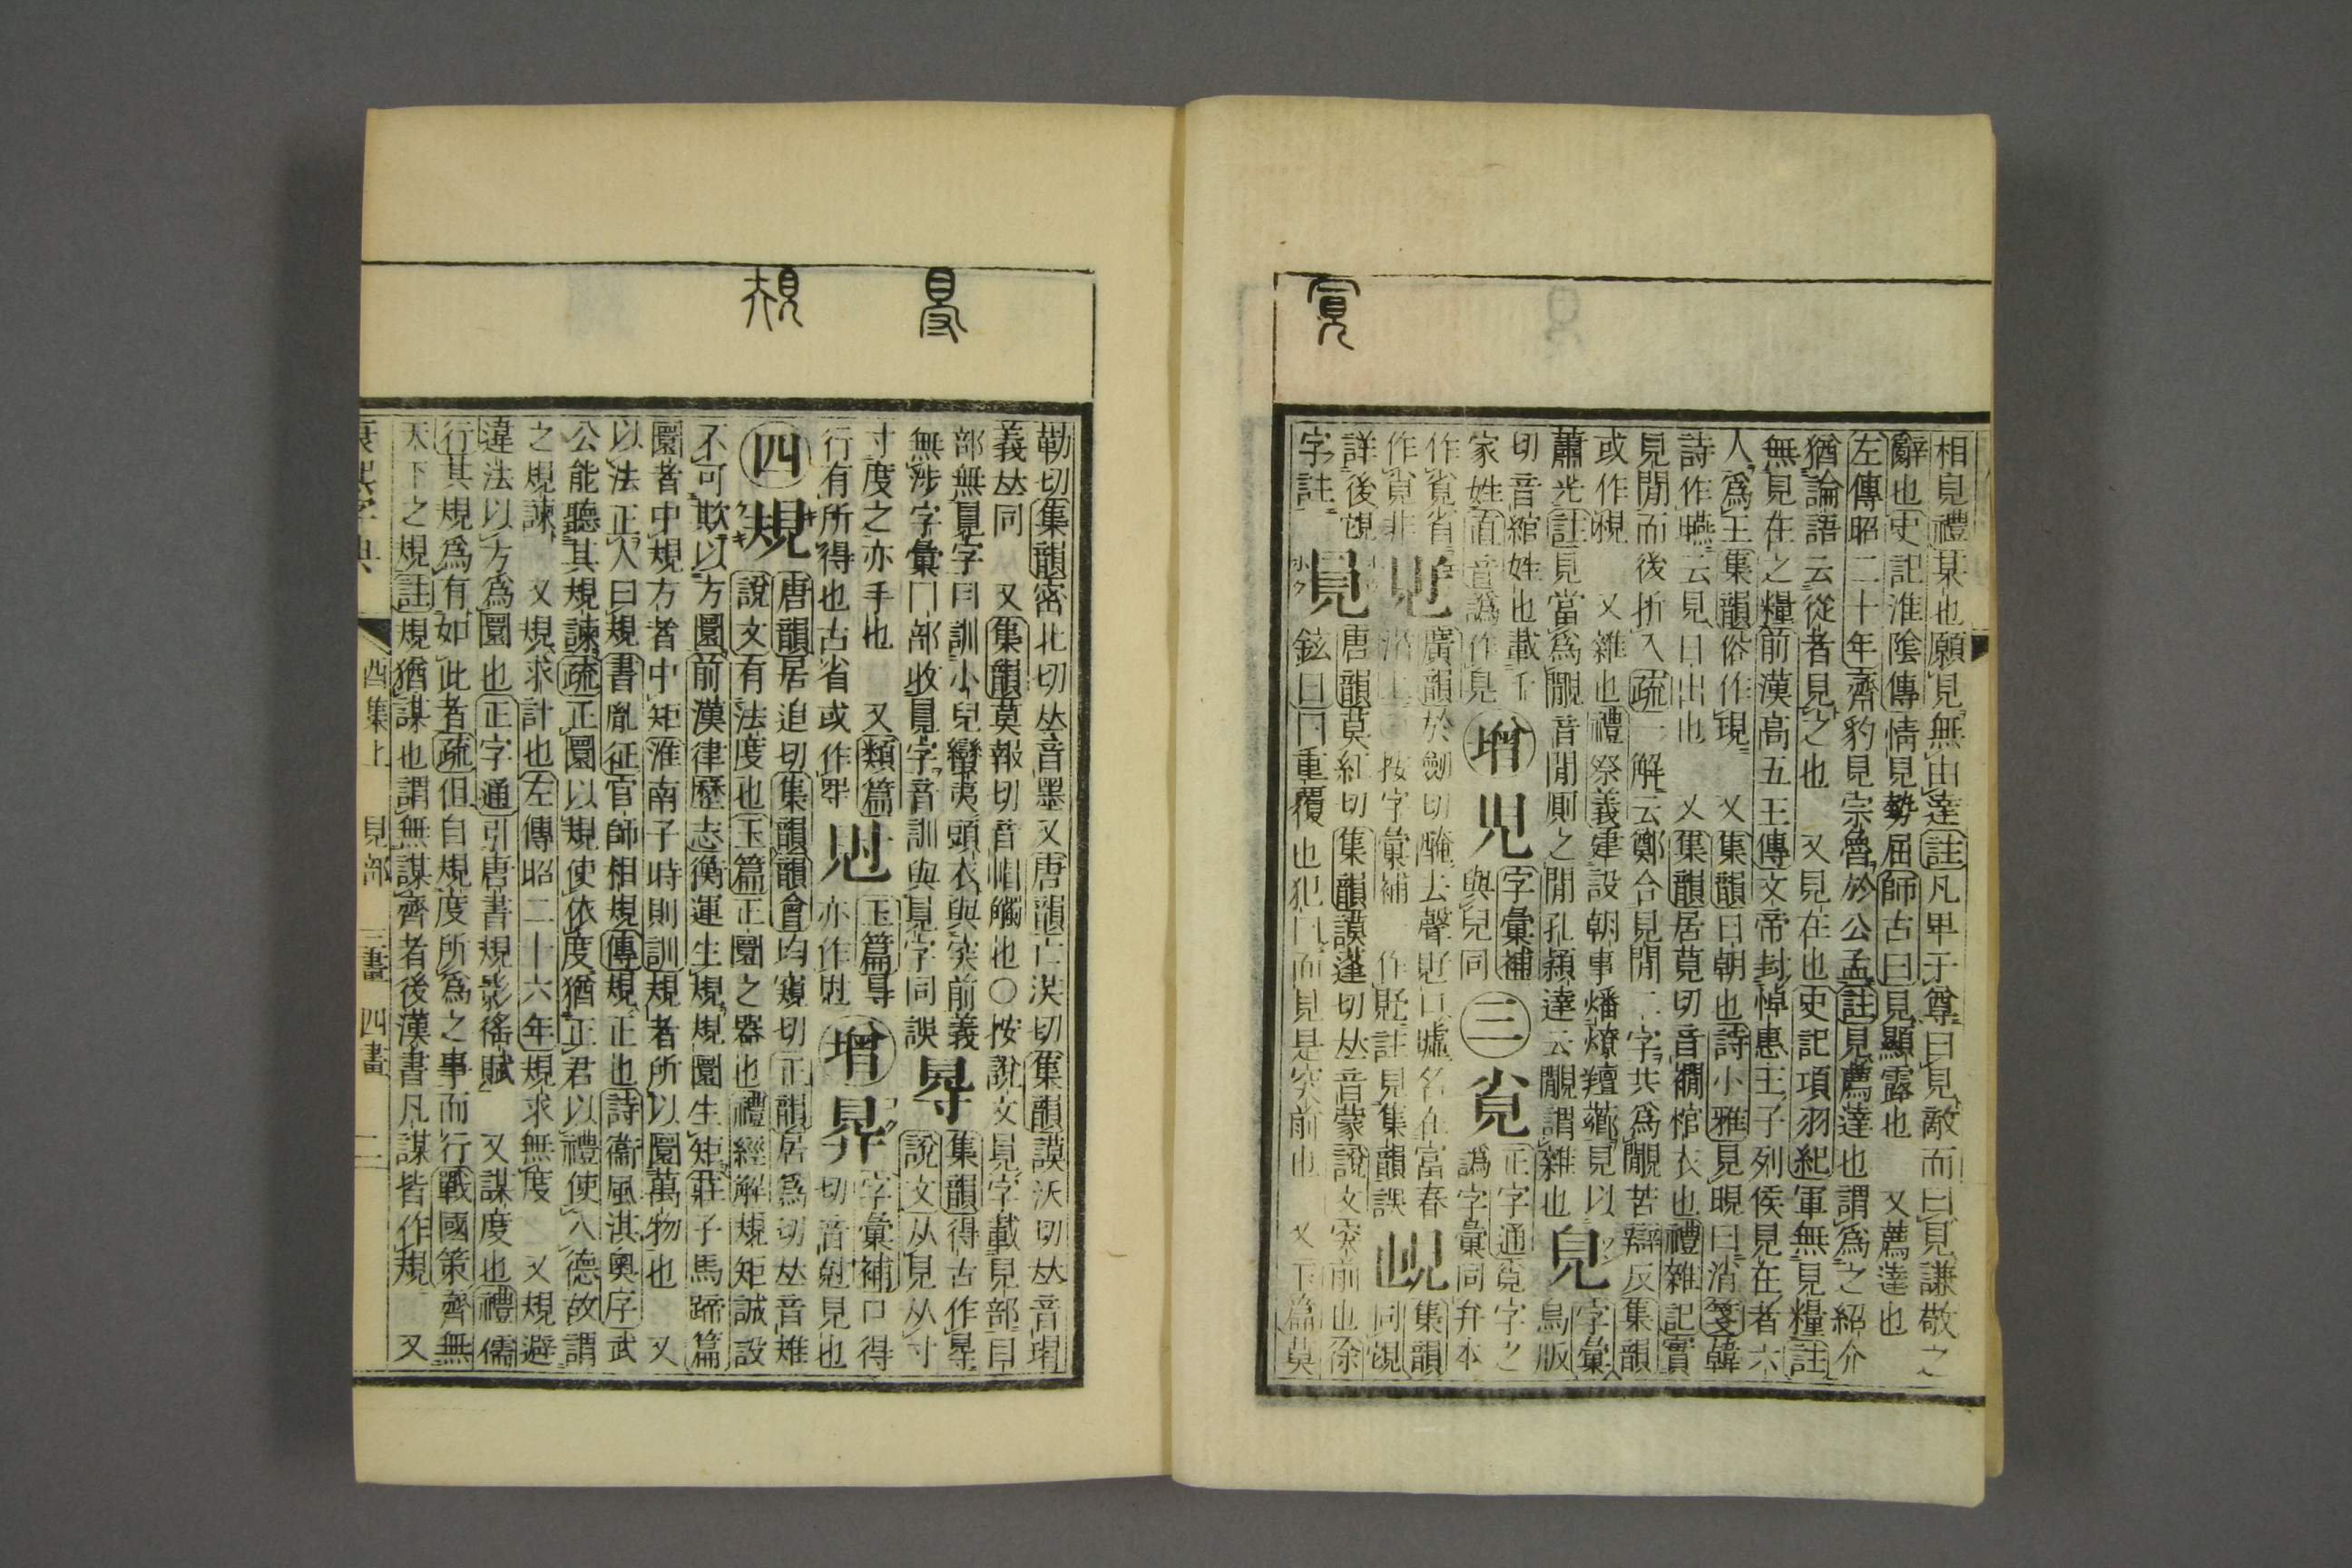 相見禮某也願見無由達註凡甲于尊曰見敵而曰見謙敬之
辭也史記淮陰傳情見勢屈師古曰見顯露也 又薦達也
左傳昭二十年齊豹見宗魯於公孟註見薦達也謂爲之紹介
猶論語云從者見之也 又見在也史記項羽紀軍無見糧註
無見在之糧前漢高五王傳文帝封悼惠王子列侯見在者六
人爲王集韻俗作現 又集韻日朝也詩小雅見晛曰消箋韓
詩作曣云見日出也 又集韻居莧切音襉棺衣也禮雜記實
見閒而後折入疏一解云鄭合見閒二字共爲覵苦辯反集韻
或作梘 又雜也禮祭義建設朝事燔燎羶薌見以
蕭光註見當爲覵音閒厠之閒孔穎達云覵謂雜也 皃 字彙
烏版
切音綰姓也載千
家姓 増 兒 字彙補
與兒同 三 覓 正字通覓字之
譌字彙同弁本
廣韻於劒切醃去聲
按字彙補
作覓非
詳後
字註 唐韻莫紅切集韻謨蓬切𠀤音蒙說文突前也徐
鉉曰冂重覆也犯冂而見是突前也 又玉篇莫
勒切集韻密北切𠀤音墨又唐韻亡沃切集韻謨沃切𠀤音瑁
義𠀤同 又集韻莫報切音帽觸也○按說文見字載見部曰
部無字曰訓小兒蠻夷頭衣與突前義
無涉字彙冂部收字音訓與見字同誤 㝵 集韻得古作㝵
說文从見从寸
寸度之亦手也 又類篇
行有所得也古省或作㝶 玉篇㝵
亦作 増 字彙補口得
切音 見也
四 規 唐韻居追切集韻韻會均窺切正韻居爲切𠀤音雉
說文有法度也玉篇正圜之器也禮經解規矩誠設
不可欺以方圜前漢律歷志衡運生規規圜生矩莊子馬蹄篇
圜者中規方者中矩淮南子時則訓規者所以圜萬物也 又
以法正人曰規書胤征官師相規傳規正也詩衞風淇奧序武
公能聽其規諫疏正圜以規使依度猶正君以禮使入德故謂
之規諫 又規求計也左傳昭二十六年規求無度 又規避
違法以方爲圜也正字通引唐書規影徭賦 又謀度也禮儒
行其規爲有如此者疏但自規度所爲之事而行戰國策齊無
天下之規註規猶謀也謂無謀齊者後漢書凡謀皆作規 又
康熙字典 酉集上 見部 三畫 四畫 二